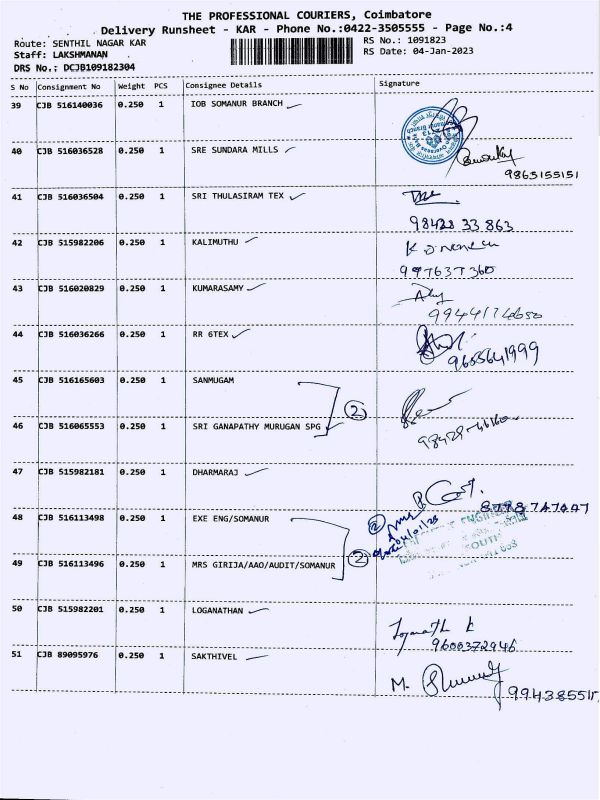 THE PROFESSIONAL COURIERS, Coimbatore
Delivery Runsheet - KAR - Phone No.:0422-3505555 - Page No.:4
Route: SENTHIL NAGAR KAR
RS No.: 1091823
Staff: LAKSHMANAN
RS Date: 04-Jan-2023
DRS No.: DCJB109182304
S No Consignment No Weight PCS Consignee Details Signature
39 CJB 516140036 0.250 1 IOB SOMANUR BRANCH
40 CJB 516036528 0.250 1 SRE SUNDARA MILLS
9865155151
41 CJB 516036504 0.250 1 SRI THULASIRAM TEX
98428 33 863
42 CJB 515982206 0.250 1 KALIMUTHU
997637360
43 CJB 516020829 0.250 1 KUMARASAMY
44 CJB 516036266 0.250 1 RR 6TEX
9655641999
45 CJB 516165603 0.250 1 SANMUGAM
2
46 CJB 516065553 0.250 1 SRI GANAPATHY MURUGAN SPG
47 CJB 515982181 0.250 1 DHARMARAJ
48 CJB 516113498 0.250 1 EXE ENG/SOMANUR
2
49 CJB 516113496 0.250 1 MRS GIRIJA/AAO/AUDIT/SOMANUR
2
50 CJB 515982201 0.250 1 LOGANATHAN
Loganath k
9600372946
51 CJB 89095976 0.250 1 SAKTHIVEL
M.